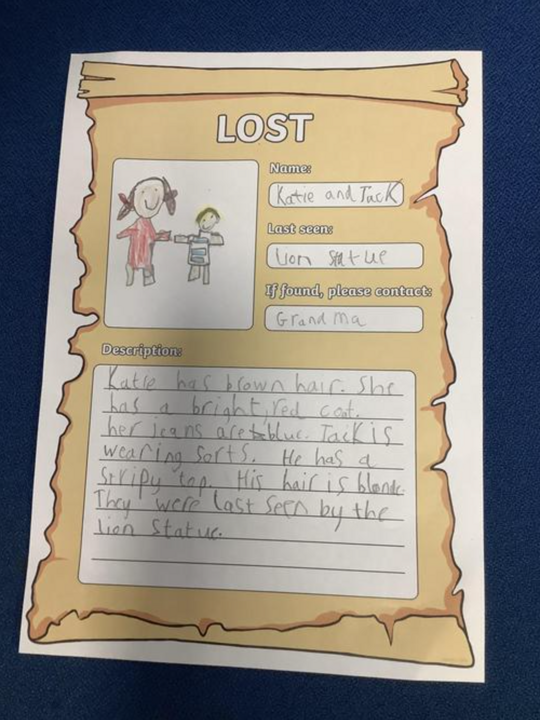 LOST
Name:
Katie and Jack
Last seen:
Lion Statue
If found, please contact:
Grandma
Description:
Katie has brown hair. She
has a bright, red cot.
her jeans are blue. Jack is
wearing sorts. He has a
stripy top. His hair is blonde.
They were last seen by the
lion statue.